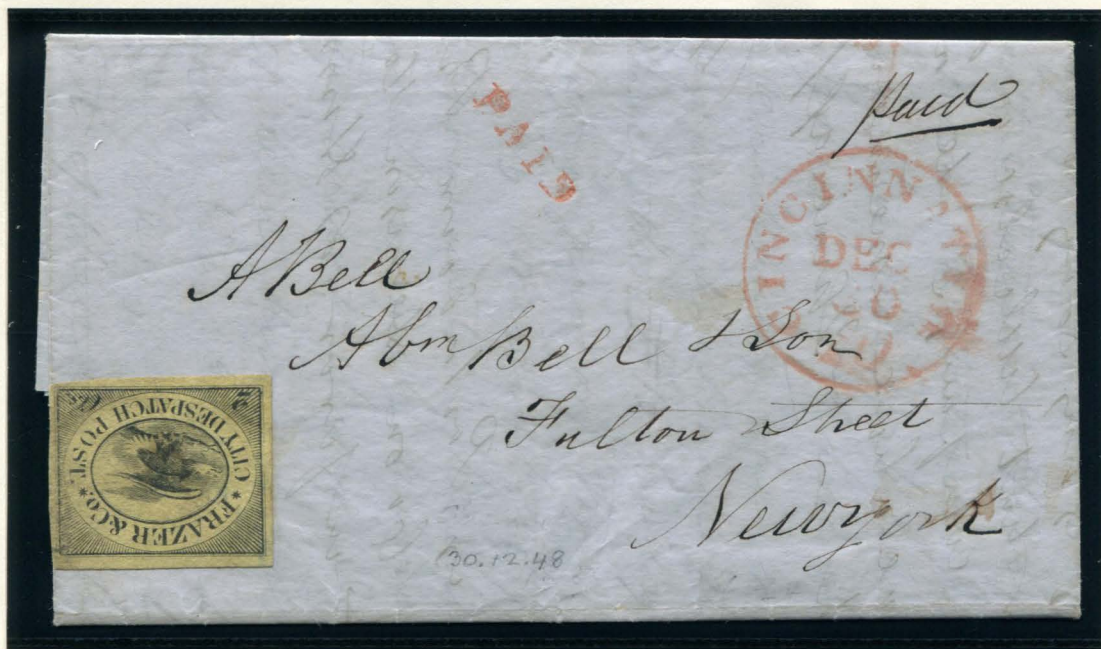 Paid
PAID
CINCINNATI
DEC
30
A Bell
Abm Bell & Son
Fulton Street
New york
CITY DESPATCH POST.
FRAZER & Co.
30.12.48